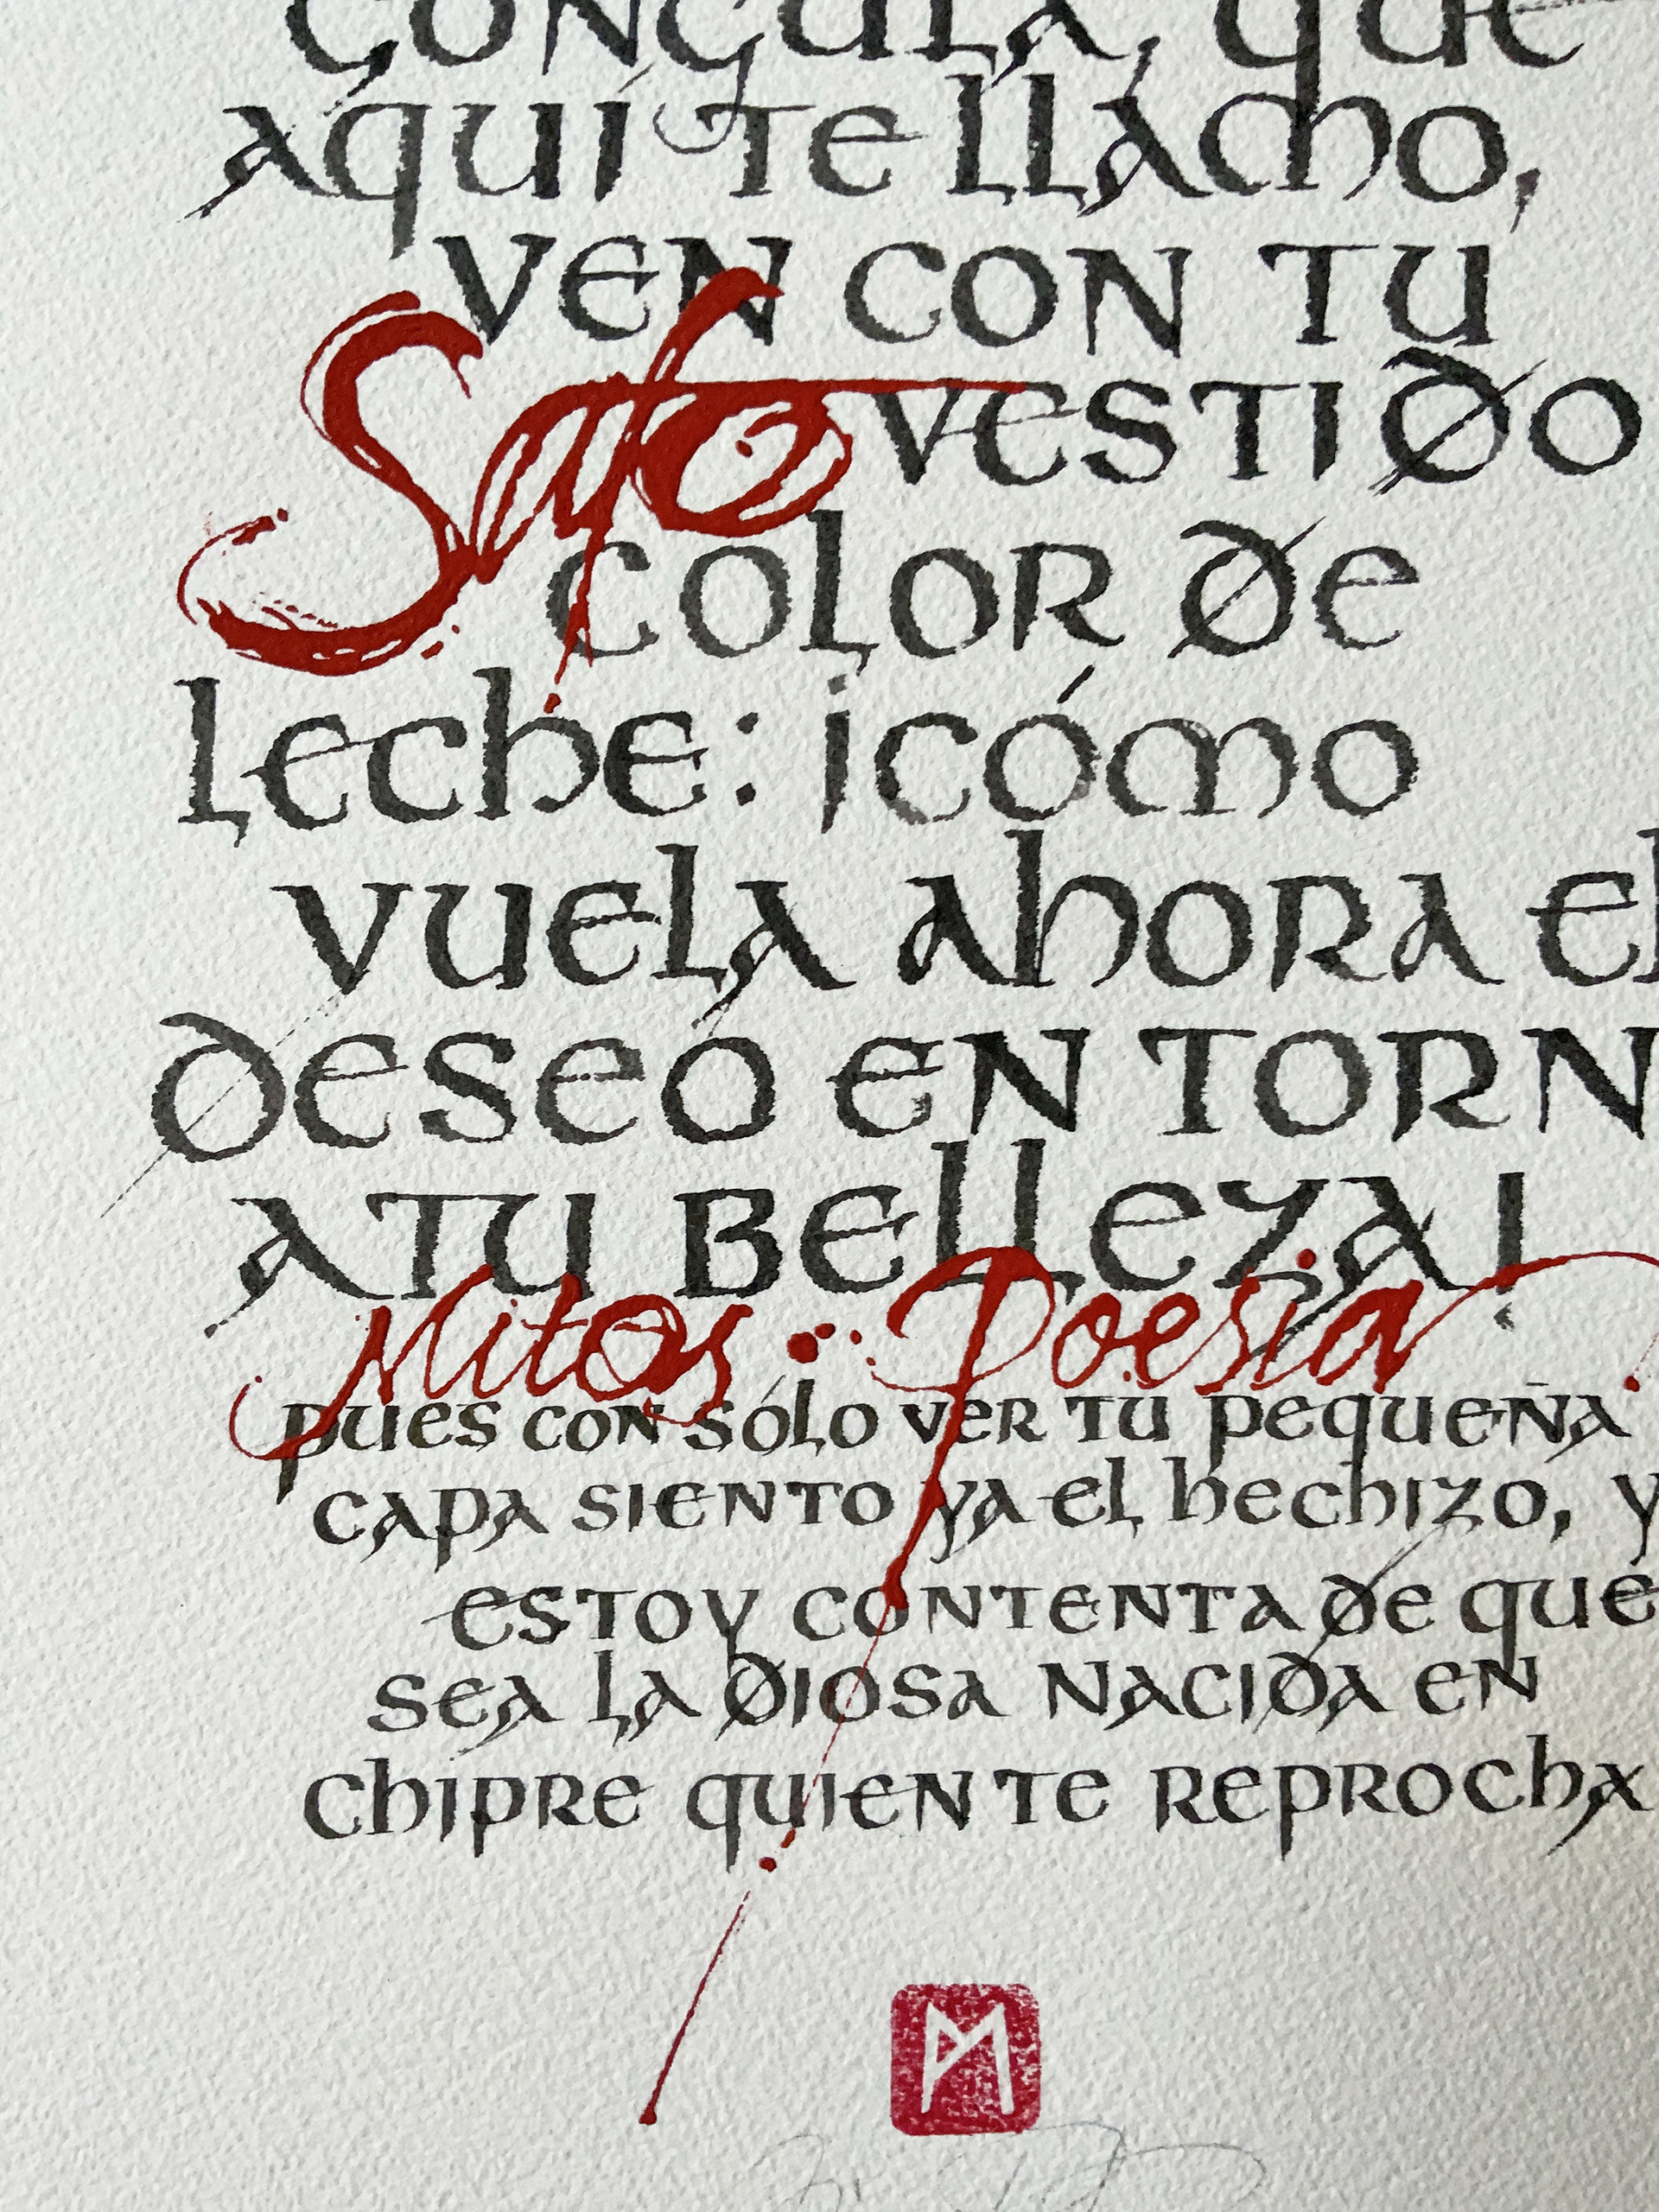 GÓNGULA, QUE
AQUÍ TE LLAMO,
VEN CON TU
Safo
VESTIDO
COLOR DE
LECHE: ¡CÓMO
VUELA AHORA EL
DESEO EN TORN
A TU BELLEZA!
Mitos : Poesía
PUES CON SÓLO VER TU PEQUEÑA
CAPA SIENTO YA EL HECHIZO, Y
ESTOY CONTENTA DE QUE
SEA LA DIOSA NACIDA EN
CHIPRE QUIEN TE REPROCHA
M